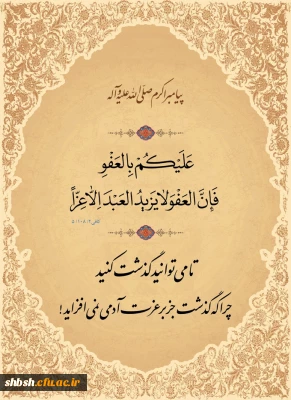 پیامبر اکرم صلی الله علیه و آله
عَلَيْكُمْ بِالعَفْوِ
فَإِنَّ العَفْوَ لا يَزيدُ العَبْدَ إِلّا عِزّاً
تا می توانید گذشت کنید
چرا که گذشت جز بر عزت آدمی نمی افزاید!
shbsh.cfu.ac.ir